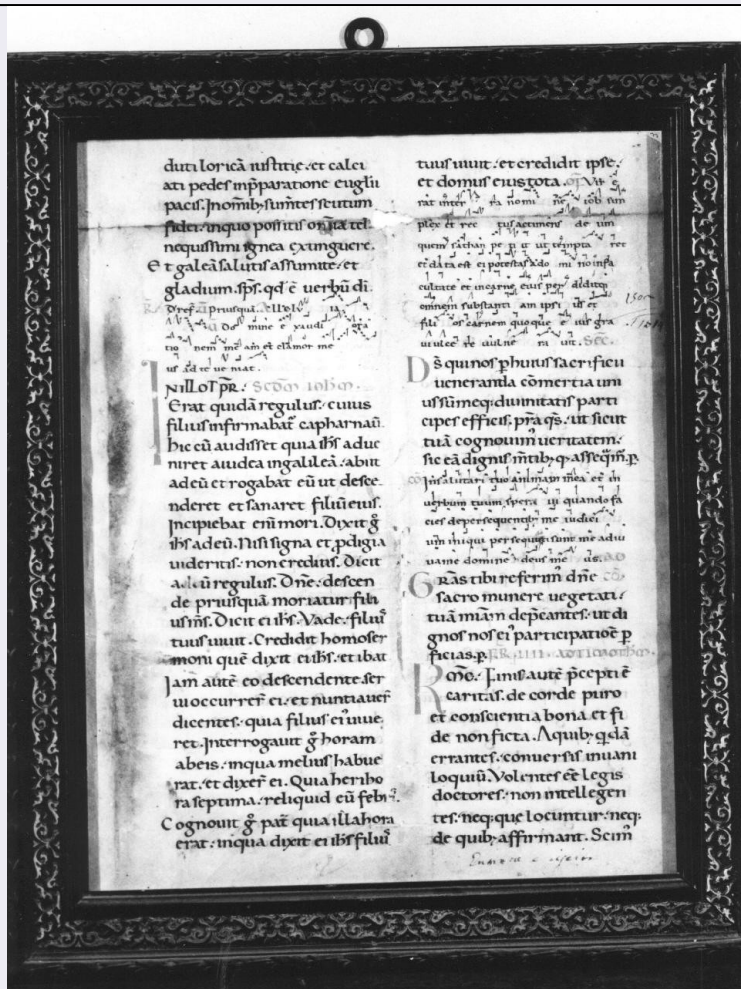 duti loricā iustitie. et calci
ati pedes inp̄paratione euglii
pacis. Inom̄ib; sum̄tes scutum
fidei. inquo possitis om̄ia tel
nequissimi ignea exinguere.
Et galeā salutis assumite. et
gladium. sp̄s. qd̄ ē uerbū dī.
priusquā
Do mine exaudi ora
tio nem meam et clamor me
us ad te ue niat.
INILLOT̄PR̄. Scdm̄ Ioh̄m
Erat quidā regulus. cuius
filius infirmabat̄ capharnaū.
hic cū audisset quia ihs̄ adue
niret aiudea ingalileā. abiit
adeū et rogabat eū ut desce
nderet et sanaret filiū eius.
Incipiebat eni̅ mori. Dixit ḡ
ihs̄ adeū. Nisi signa et pdigia
uideritis. non creditis. Dicit
adeū regulus. Dn̄e. descen
de priusquā moriatur fili
us m̄s. Dicit ei ihs̄. Vade. filiuſ
tuus uiuit. Credidit homo ser
moni quē dixit ei ihs̄. et ibat
Iam autē eo descendente. ser
ui occurrer̄ ei. et nuntiauer̄
dicentes. quia filius ei uiue
ret. Interrogauit ḡ horam
abeis. inqua melius habue
rat. et dixer̄ ei. Quia heri ho
ra septima. reliquid eū febris.
Cognouit ḡ pat̄ quia illa hora
erat. inqua dixit ei ihs̄ filiuſ
tuus uiuit. et credidit ipse.
et domus eius tota. Vir e
rat in ter ra nomi ne iob sim
plex et rec tus ac timens de um
quem sathan pe ti it ut temptaret
et data est ei potestas ado mi no infa
cultate et incarne eius
omnem substanti am ipsi us et
fili os carnem quoque e ius gra
ui ulcere uulne ra uit. Sec.
Ds̄ qui nos p huius sacrificii
ueneranda cōmertia uni
us sūmeq; diuinitatis parti
cipes efficis. pr̄a qs̄. ut sicut
tuā cognouim̄ ueritatem.
sic eā dignis m̄tib; 
In salutari tuo anima mea et in
uerbum tuum spera ui quando fa
cies depersequentib; me iudici
um iniqui persequuti sunt me adiu
ua me domine deus me us.
Gr̄as tibi referim̄ dn̄e
sacro munere uegetati.
tuā mi̅am dep̄cantes. ut di
gnos nos ei participatiōe p
ficias. p. FR̄. IIII. AD TIMOTHM̄.
Finis autē p̄cepti ē
caritas. de corde puro
et conscientia bona et fi
de non ficta. Aquib; qdā
errantes. conuersis inuani
loquiū. Volentes eē legis
doctores. non intellegen
tes. neq; que locuntur. neq;
de quib; affirmant. Scim̄